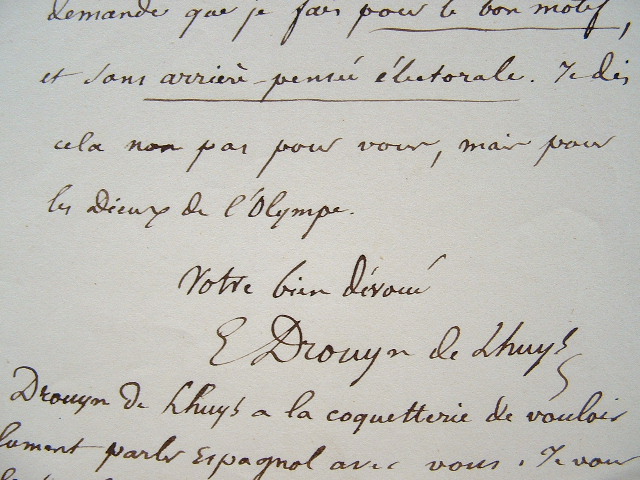 demande que je fais pour le bon motif,
et sans arrière-pensée électorale. Je dis
cela non pas pour vous, mais pour
les Dieux de l'Olympe.
Votre bien dévoué
E Drouyn de Lhuys
Drouyn de Lhuys a la coquetterie de vouloir
parler Espagnol avec vous. Je vous